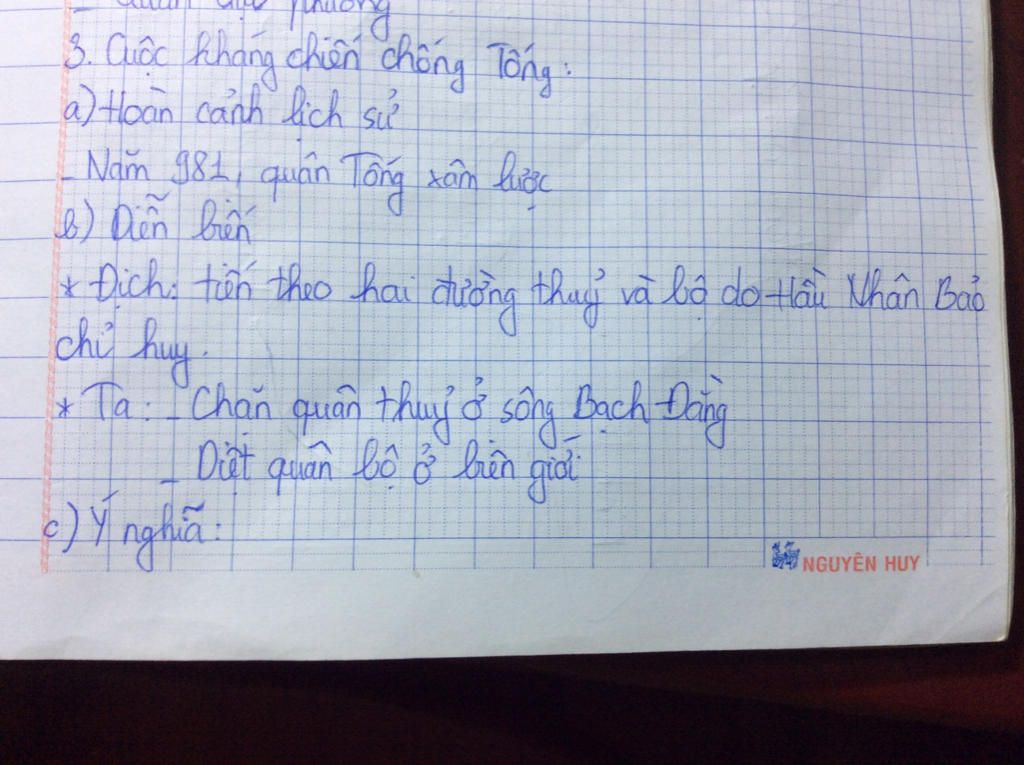 - Quân địa phương
3. Cuộc kháng chiến chống Tống:
a) Hoàn cảnh lịch sử
- Năm 981, quân Tống xâm lược
b) Diễn biến
* Địch: tiến theo hai đường thuỷ và bộ do Hầu Nhân Bảo
chỉ huy.
* Ta: - Chặn quân thuỷ ở sông Bạch Đằng
- Diệt quân bộ ở biên giới
c) Ý nghĩa:
NGUYÊN HUY